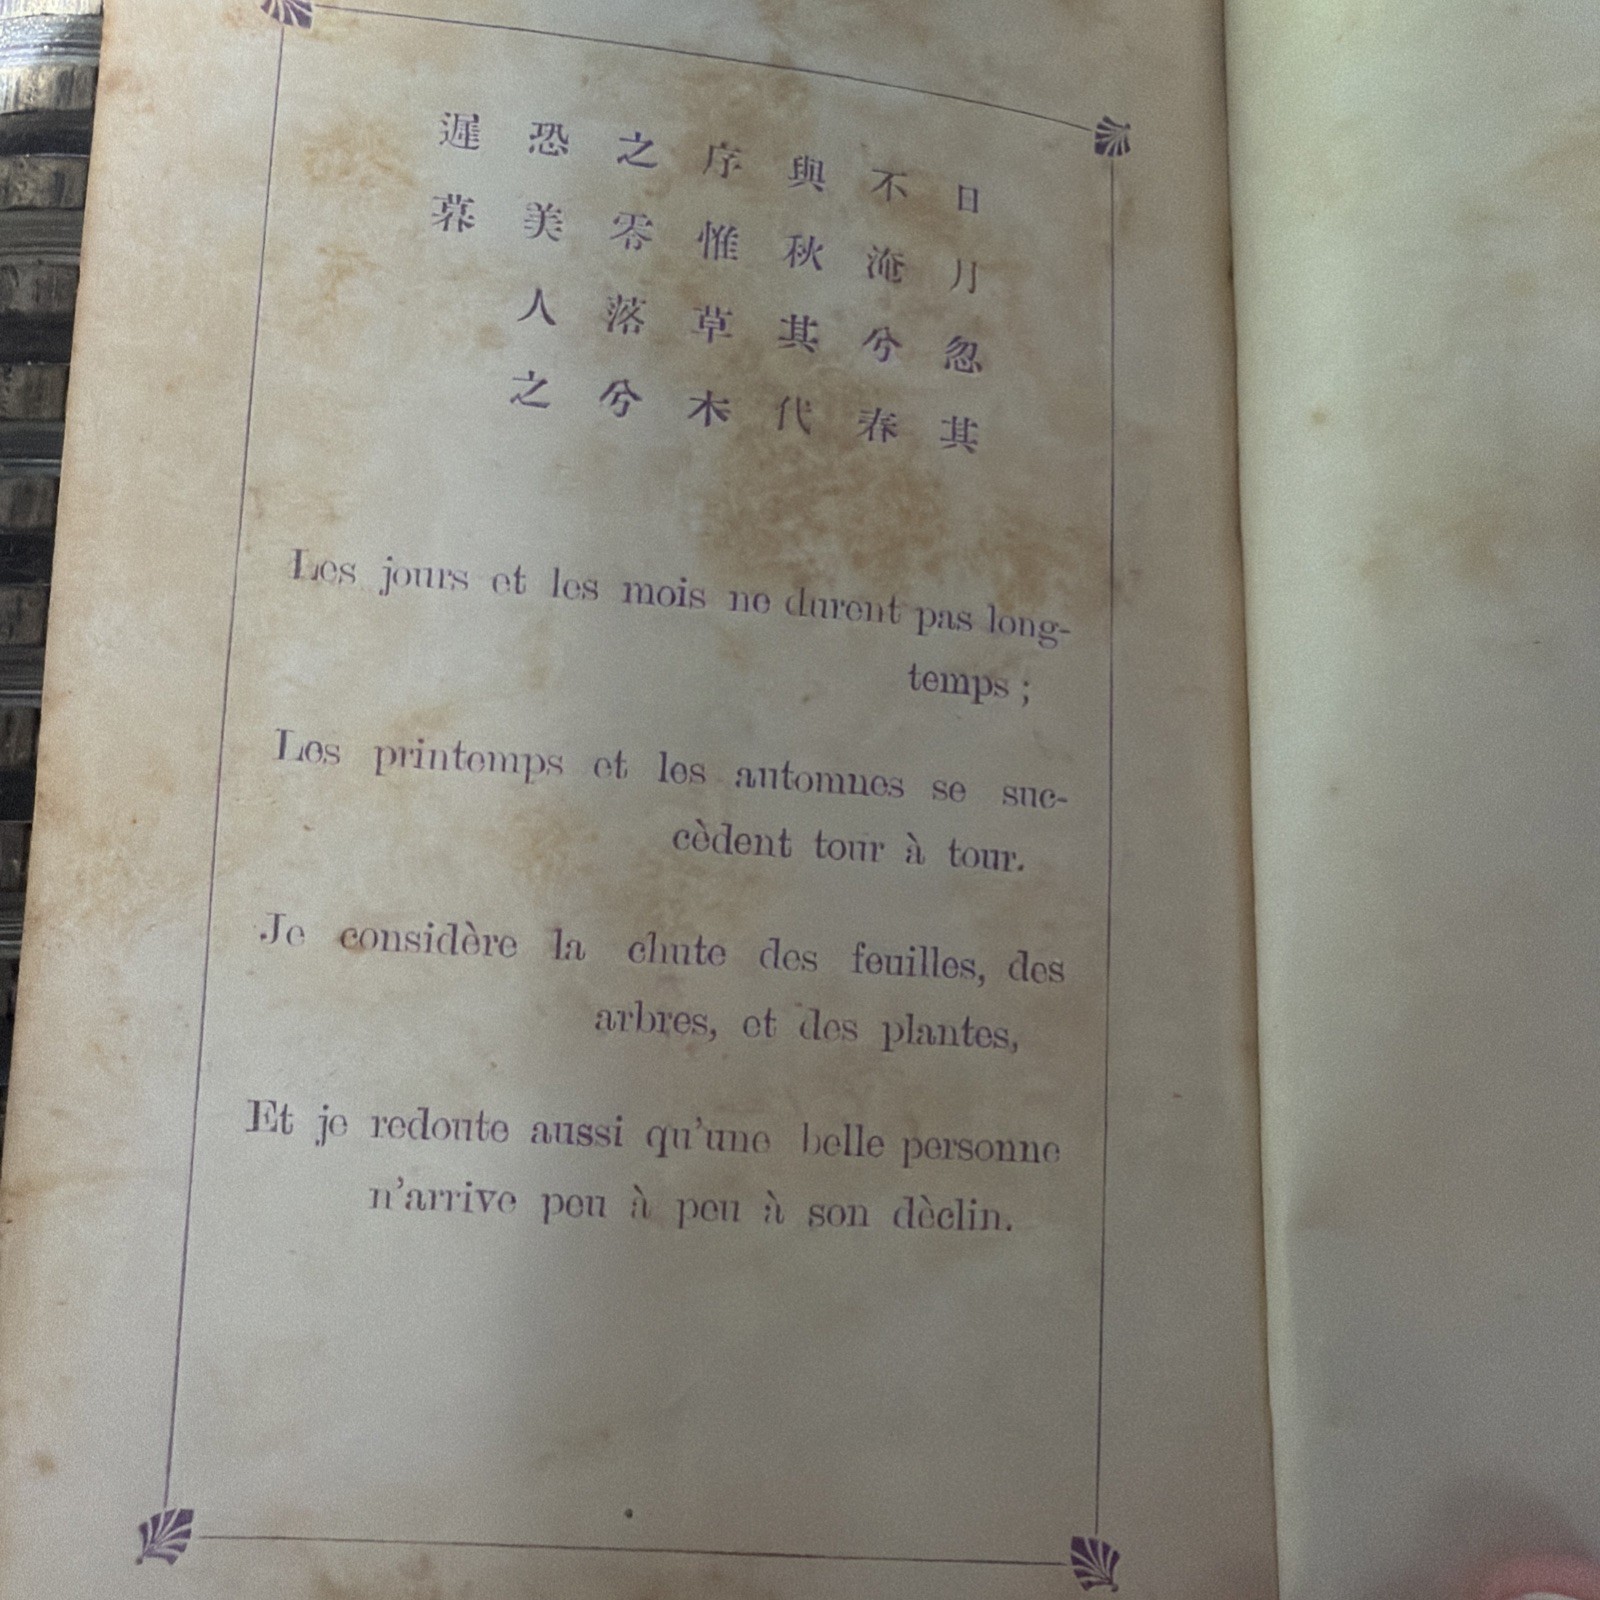 日月忽其
不淹兮春
與秋其代
序惟草木
之零落兮
恐美人之
遲暮
Les jours et les mois ne durent pas long-
temps ;
Les printemps et les automnes se suc-
cèdent tour à tour.
Je considère la chute des feuilles, des
arbres, et des plantes,
Et je redoute aussi qu'une belle personne
n'arrive peu à peu à son dèclin.